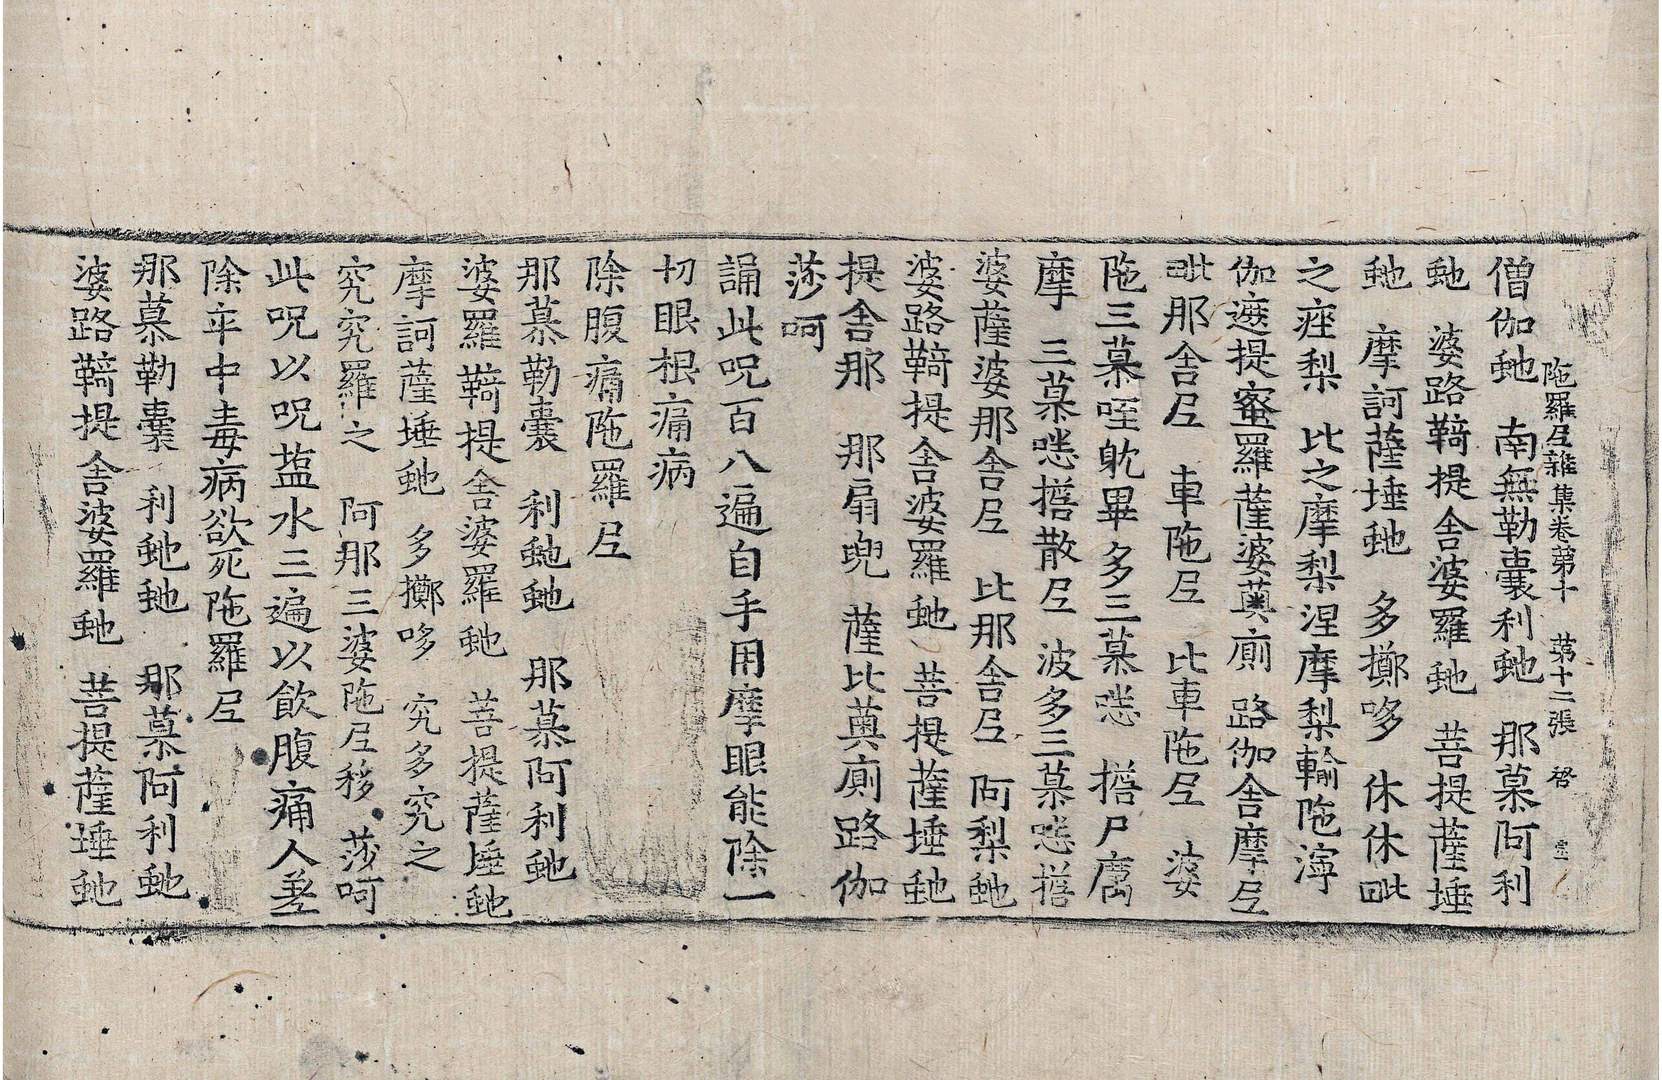 陁羅𡰱雜集卷第十　第十二張　啓
僧伽虵　南無勒囊利虵　那慕阿利
虵　婆路鞊提舍婆羅虵　菩提薩埵
虵　摩訶薩埵虵　多擲哆　休休毗
之痤梨　比之摩梨涅摩梨輸陁濘
伽遮提蜜羅薩婆薁廁　路伽舍摩𡰱
毗那舍𡰱　車陁𡰱　比車陁𡰱　婆
陁三慕咥躭畢多三慕嗏　㨜尸厲
摩　三慕嗏㨜散𡰱　波多三慕嗏㨜
婆薩婆那舍𡰱　比那舍𡰱　阿梨虵
婆路鞊提舍婆羅虵　菩提薩埵虵
提舍那　那肩兜　薩比薁廁路伽
莎呵
誦此呪百八遍自手用摩眼能除一
切眼根痛病
除腹痛陁羅𡰱
那慕勒囊　利虵虵　那慕阿利虵
婆羅鞊提舍婆羅虵　菩提薩埵虵
摩訶薩埵虵　多擲哆　究多究之
究究羅之　阿那三婆陁𡰱移　莎呵
此呪以呪塩水三遍以飲腹痛人差
除卒中毒病欲死陁羅𡰱
那慕勒囊　利虵虵　那慕阿利虵
婆路鞊提舍婆羅虵　菩提薩埵虵